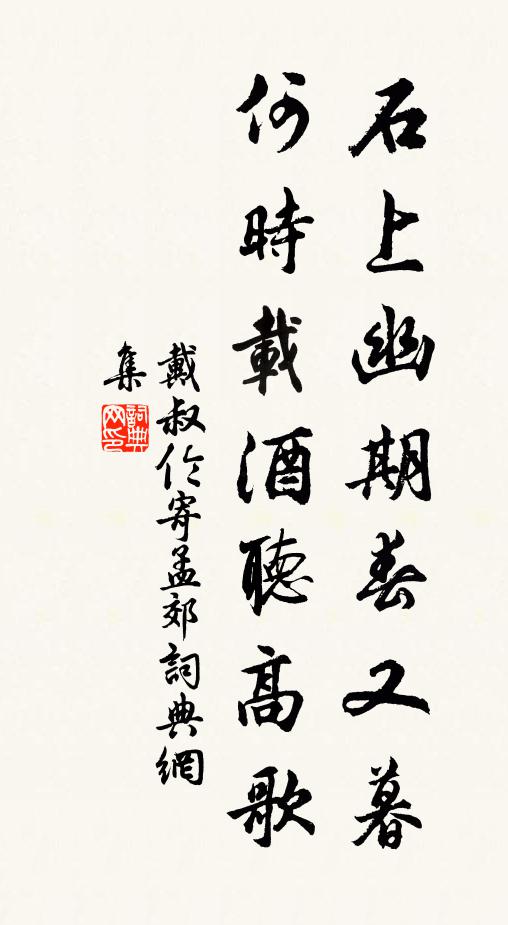 石上幽期春又暮
何時載酒聽高歌
戴叔伦寄孟郊詞典網
集
詞典网印